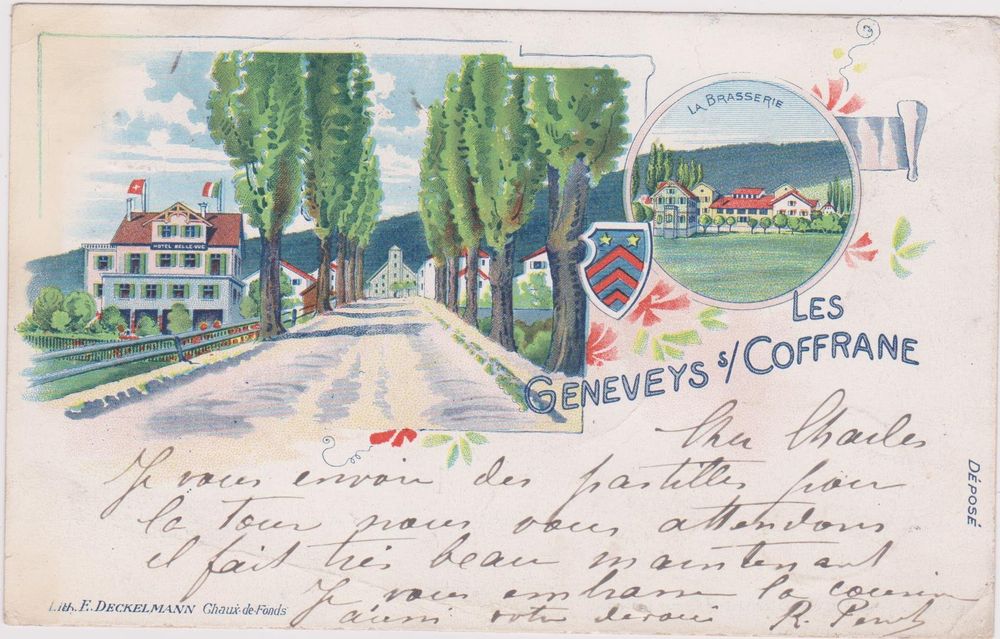 HOTEL BELLE-VUE
LA BRASSERIE
LES
GENEVEYS s/ COFFRANE
Cher Charles
Je vous envoie des pastilles pour
la Tour nous vous attendons
il fait très beau maintenant
Je vous embrasse la cousine
aussi votre
R.
DÉPOSÉ
Lith. E. DECKELMANN Chaux-de-Fonds